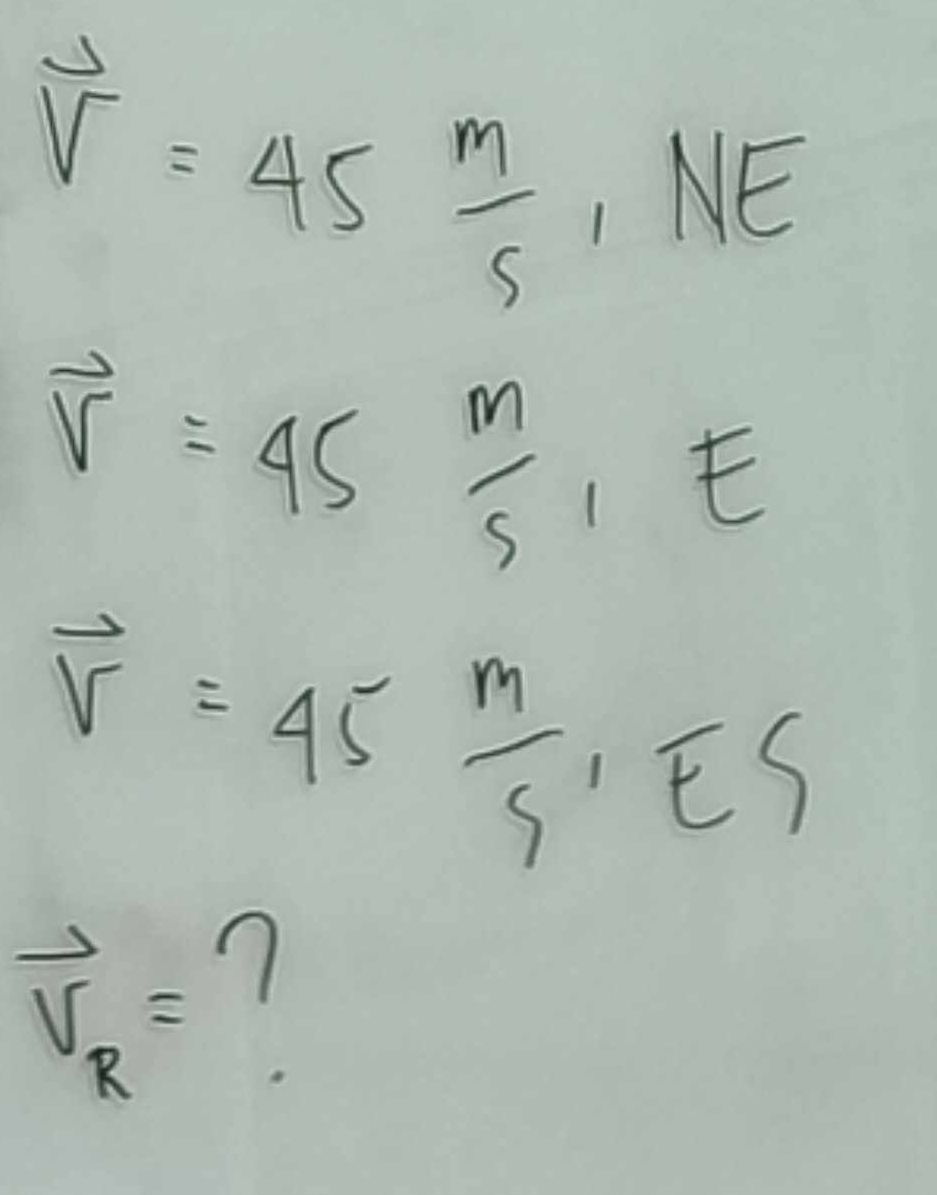 V⃗ = 45 m/s, NE
V⃗ = 45 m/s, E
V⃗ = 45 m/s, ES
V⃗_R = ?